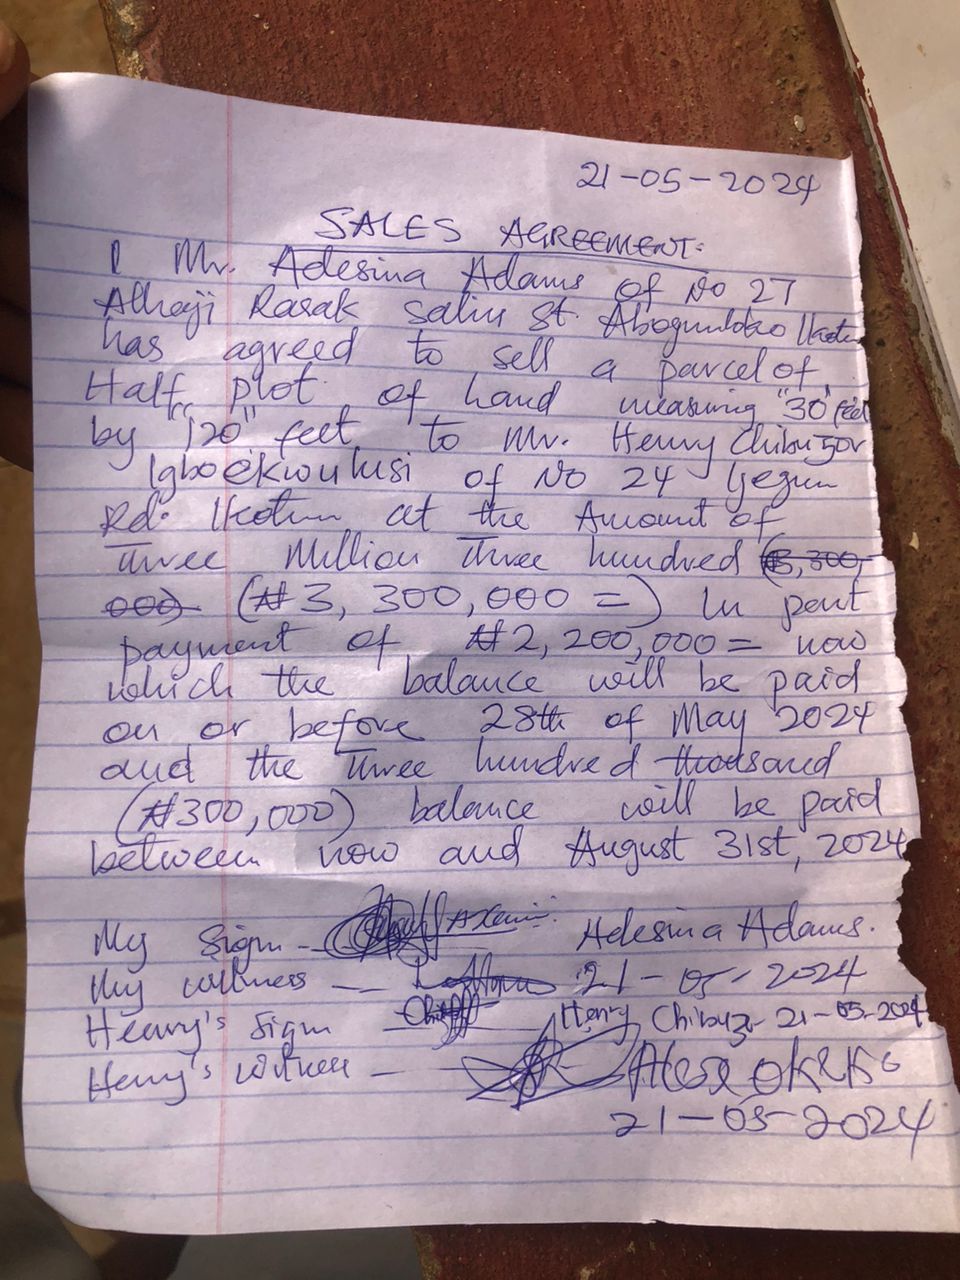 21-05-2024
SALES AGREEMENT.
I Mr. Adesina Adams of No 27
Alhaji Rasak Saliu St. Abogunloko Ikotun
has agreed to sell a parcel of
Half plot of land measuring "30" feet
by "120" feet to Mr. Henry Chibuzor
Igboekwulusi of No 24 Ijegun
Rd. Ikotun at the Amount of
Three Million Three hundred (₦3,300,
000) (₦3,300,000=) In part
payment of ₦2,200,000= now
which the balance will be paid
on or before 28th of May 2024
and the Three hundred thousand
(₦300,000) balance will be paid
between now and August 31st, 2024
My Sign - Adesina Adams.
My witness - 21-05-2024
Henry's Sign Henry Chibuzor 21-05-2024
Henry's witness - Okeke
21-05-2024